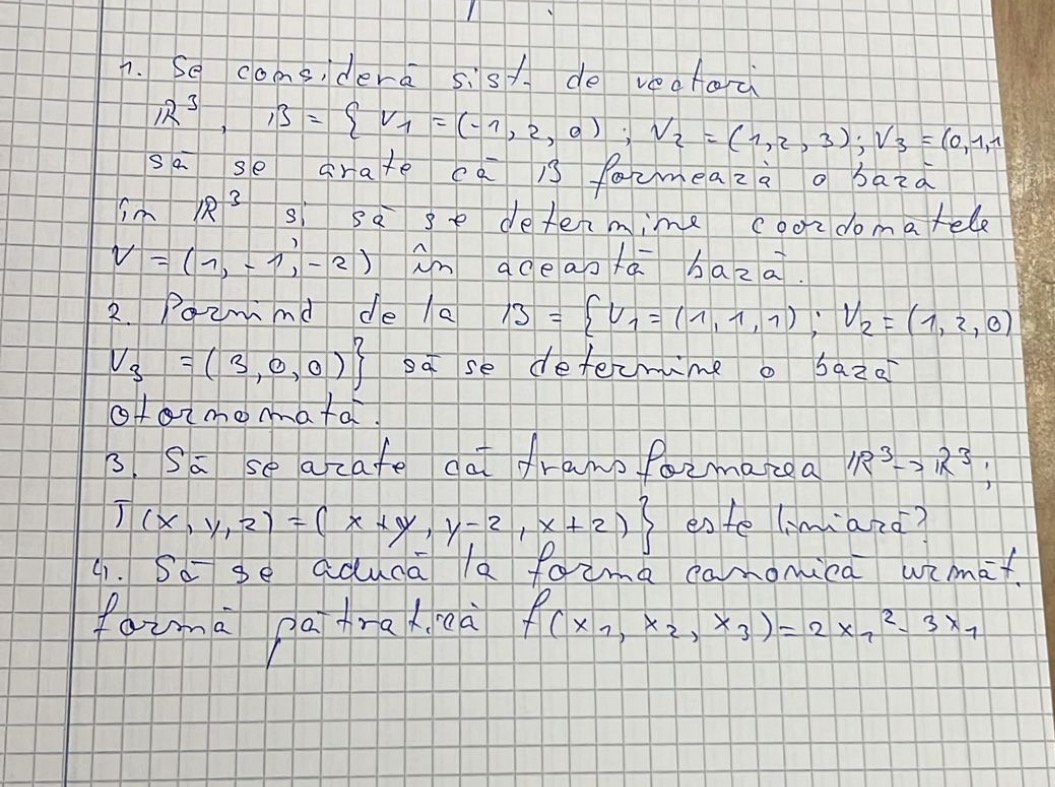 1. Se consideră sist. de vectori
R³, B = { V1 = (-1, 2, 0) ; V2 = (1, 2, 3) ; V3 = (0,1,1
să se arate că B formează o bază
în R³ și să se determine coordonatele
V = (1, -1, -2) în această bază.
2. Pornind de la B = { V1 = (1, 1, 1) ; V2 = (1, 2, 0)
V3 = (3, 0, 0)} să se determine o bază
otornomată.
3. Să se arate că transformarea R³ -> R³ ;
T (x, y, z) = ( x + y, y - z, x + z)} este liniară?
4. Să se aducă la forma canonică următ.
formă pătratică f(x1, x2, x3) = 2x1² - 3x1